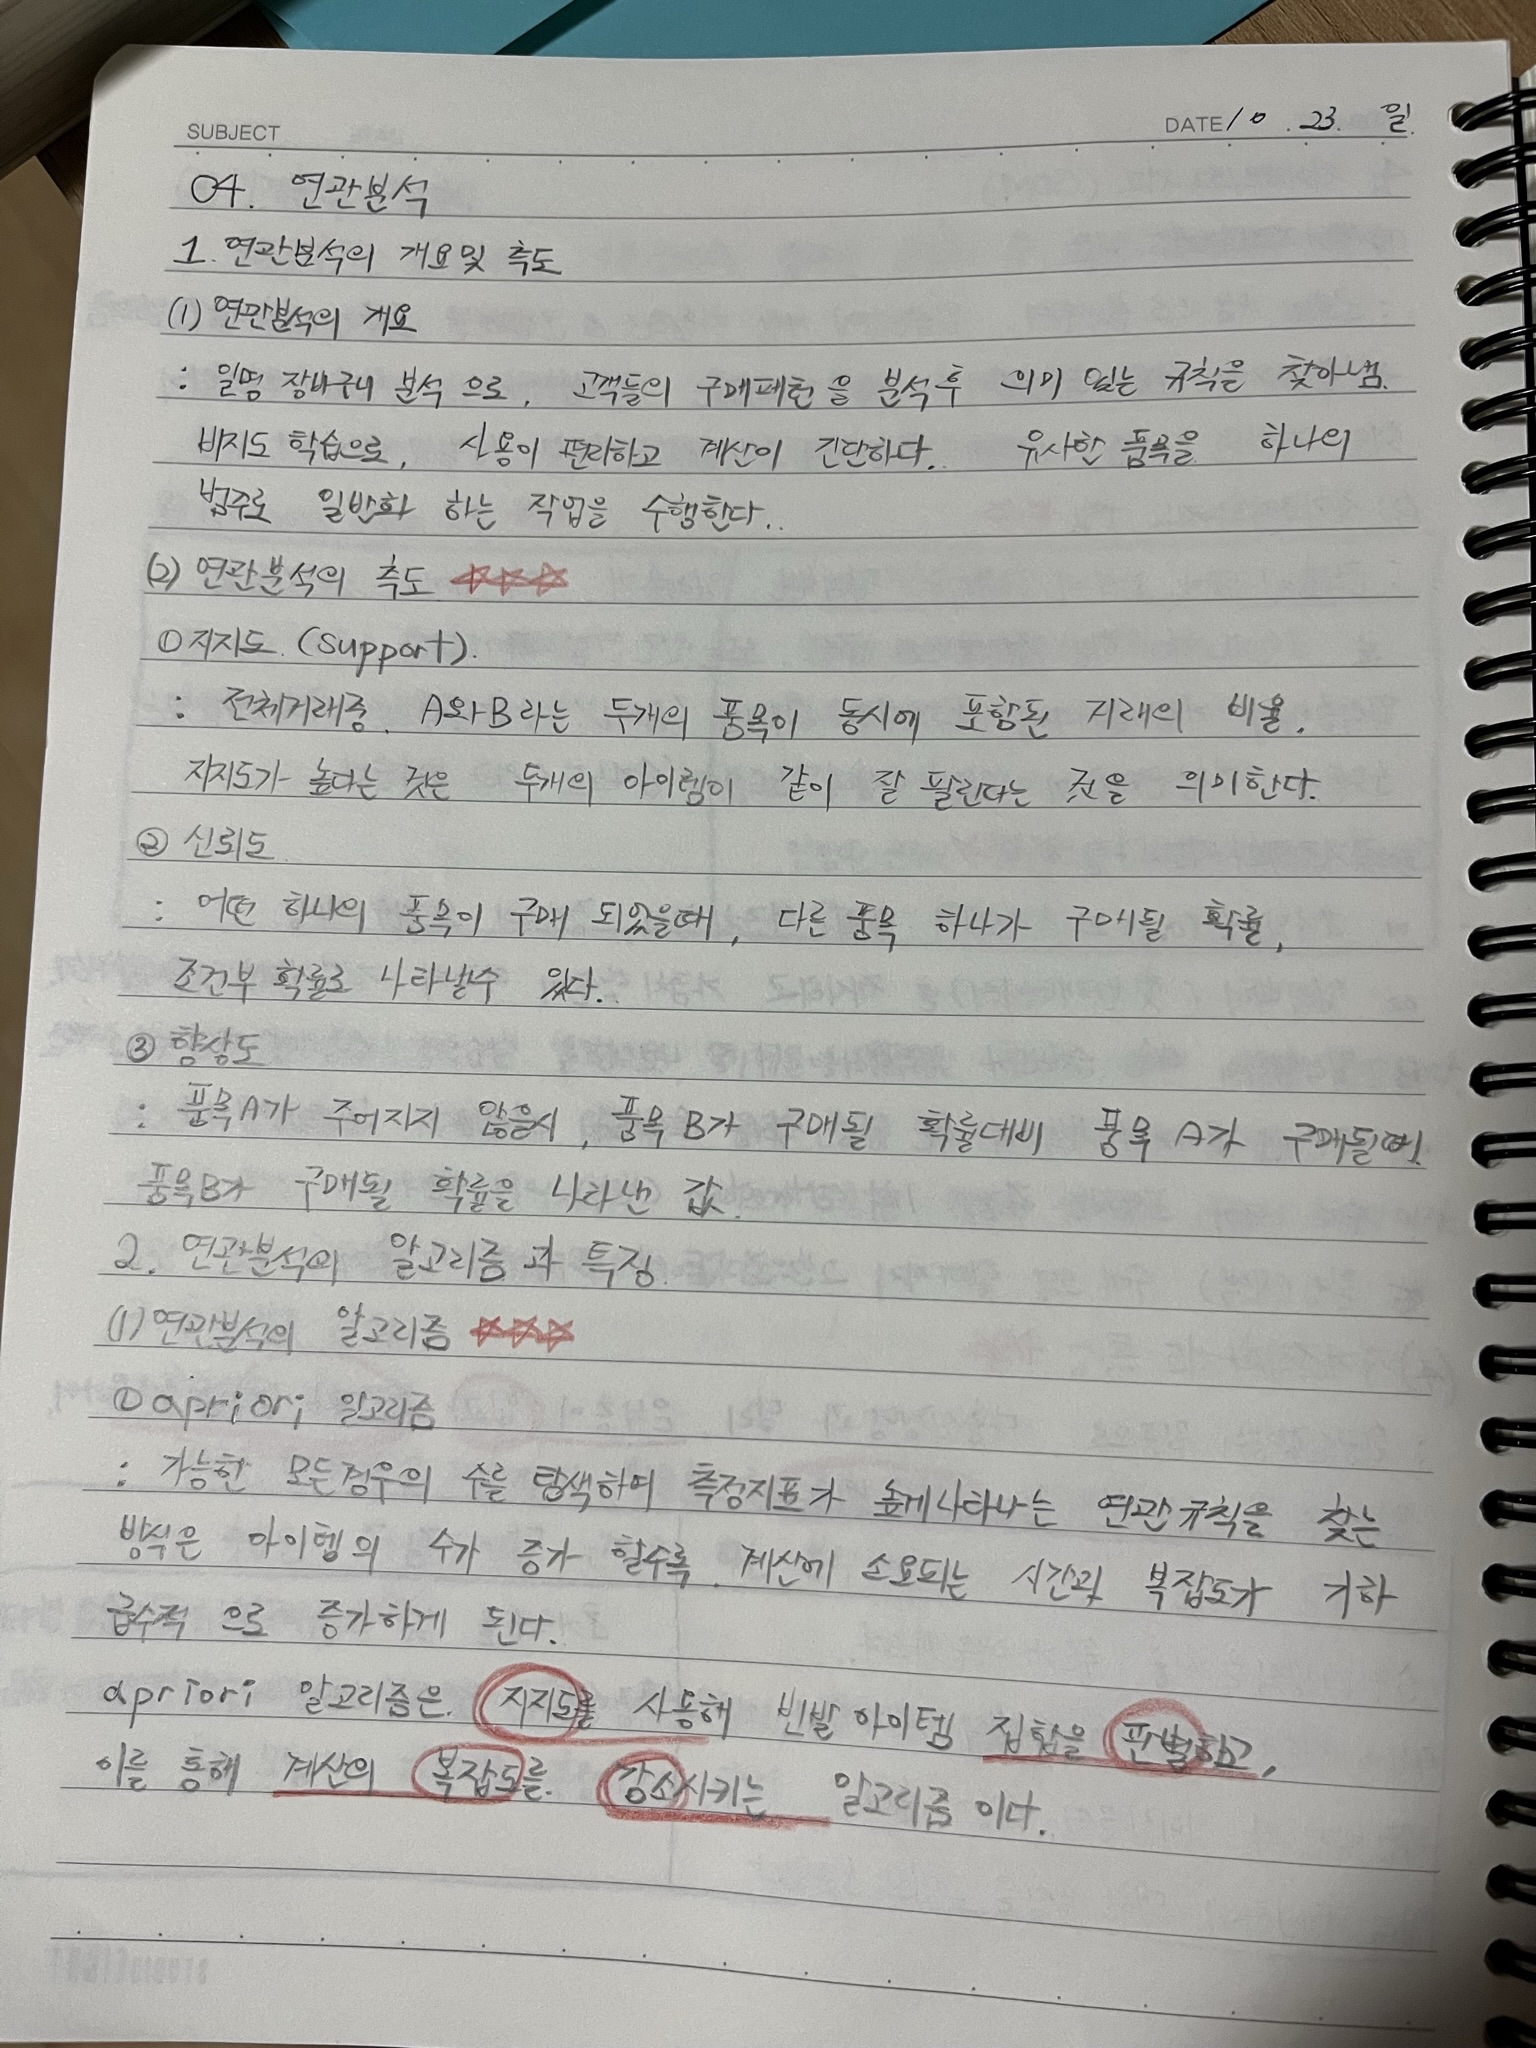 SUBJECT
DATE 10 . 23. 일.
04. 연관분석
1. 연관분석의 개요 및 측도
(1) 연관분석의 개요
: 일명 장바구니 분석 으로, 고객들의 구매패턴을 분석 후 의미 있는 규칙을 찾아냄.
비지도 학습으로, 사용이 편리하고 계산이 간단하다. 유사한 품목을 하나의
범주로 일반화 하는 작업을 수행한다..
(2) 연관분석의 측도 ☆☆☆
① 지지도. (support).
: 전체거래중. A와 B라는 두개의 품목이 동시에 포함된 거래의 비율.
지지도가 높다는 것은 두개의 아이템이 같이 잘 팔린다는 것을 의미한다.
② 신뢰도
: 어떤 하나의 품목이 구매 되었을때, 다른 품목 하나가 구매될 확률,
조건부 확률로 나타낼수 있다..
③ 향상도
: 품목A가 주어지지 않을시, 품목B가 구매될 확률대비 품목 A가 구매될때.
품목B가 구매될 확률을 나타낸 값.
2. 연관분석의 알고리즘 과 특징.
(1) 연관분석의 알고리즘 ☆☆☆
① apriori 알고리즘
: 가능한 모든경우의 수를 탐색하여 측정지표가 높게나타나는 연관규칙을 찾는
방식은 아이템의 수가 증가 할수록. 계산에 소요되는 시간과 복잡도가 기하
급수적 으로 증가하게 된다.
apriori 알고리즘은. 지지도를 사용해 빈발 아이템 집합을 판별하고,
이를 통해 계산의 복잡도를. 감소시키는 알고리즘 이다.